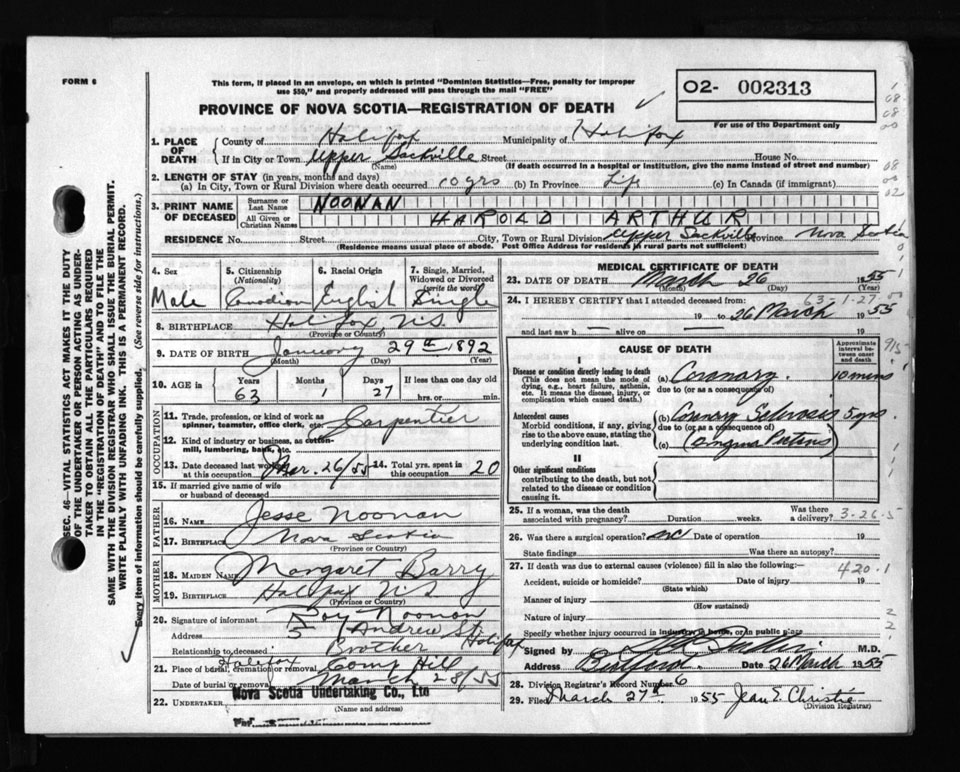 FORM 6
This form, if placed in an envelope, on which is printed "Dominion Statistics—Free, penalty for improper
use $50," and properly addressed will pass through the mail "FREE"
PROVINCE OF NOVA SCOTIA—REGISTRATION OF DEATH ✓
O2- 002313
For use of the Department only
1. PLACE OF DEATH
County of Halifax Municipality of Halifax
If in City or Town Upper Sackville Street House No.
(Name) (If death occurred in a hospital or institution, give the name instead of street and number)
2. LENGTH OF STAY (in years, months and days)
(a) In City, Town or Rural Division where death occurred 10 yrs (b) In Province Life (c) In Canada (if immigrant)
3. PRINT NAME OF DECEASED
Surname or Last Name NOONAN
All Given or Christian Names HAROLD ARTHUR
RESIDENCE No. Street City, Town or Rural Division Upper Sackville Province Nova Scotia
(Residence means usual place of abode. Post Office Address for residents in rural parts not sufficient)
4. Sex Male
5. Citizenship (Nationality) Canadian
6. Racial Origin English
7. Single, Married, Widowed or Divorced (write the word) Single
8. BIRTHPLACE Halifax N.S.
(Province or Country)
9. DATE OF BIRTH January 29th 1892
(Month) (Day) (Year)
10. AGE in Years 63 Months 1 Days 27 If less than one day old hrs. or min.
OCCUPATION
11. Trade, profession, or kind of work as spinner, teamster, office clerk, etc. Carpentier
12. Kind of industry or business, as cotton-mill, lumbering, bank, etc.
13. Date deceased last worked at this occupation Mar. 26/55 14. Total yrs. spent in this occupation 20
15. If married give name of wife or husband of deceased
FATHER
16. NAME Jesse Noonan
17. BIRTHPLACE Nova Scotia
(Province or Country)
MOTHER
18. MAIDEN NAME Margaret Barry
19. BIRTHPLACE Halifax N.S.
(Province or Country)
20. Signature of informant Roy Noonan
Address 5 Andrew St Halifax
Relationship to deceased Brother
21. Place of burial, cremation or removal Halifax Camp Hill
Date of burial or removal March 28/55
22. UNDERTAKER Nova Scotia Undertaking Co., Ltd
(Name and address)
Per
MEDICAL CERTIFICATE OF DEATH
23. DATE OF DEATH March 26 1955
(Month) (Day) (Year)
63-1-27
24. I HEREBY CERTIFY that I attended deceased from
19 to 26 March 1955
and last saw h alive on 19
CAUSE OF DEATH
Approximate interval between onset and death
I
Disease or condition directly leading to death
(This does not mean the mode of dying, e.g., heart failure, asthenia, etc. It means the disease, injury, or complication which caused death.)
(a) Coronary. 10 mins
due to (or as a consequence of)
Antecedent causes
Morbid conditions, if any, giving rise to the above cause, stating the underlying condition last.
(b) Coronary Sclerosis 5 yrs
due to (or as a consequence of)
(c) (Angina Pectoris)
II
Other significant conditions
contributing to the death, but not related to the disease or condition causing it.
25. If a woman, was the death associated with pregnancy? Duration weeks. Was there a delivery? 3-26-5
26. Was there a surgical operation? no Date of operation 19
State findings Was there an autopsy?
27. If death was due to external causes (violence) fill in also the following:— 420.1
Accident, suicide or homicide? Date of injury 19
(State which)
Manner of injury
(How sustained)
Nature of injury
Specify whether injury occurred in industry, in home, or in public place
Signed by M.D.
Address Bedford Date 26 March 1955
28. Division Registrar's Record Number 6
29. Filed March 27th 1955 Jean E. Christie
(Division Registrar)
SEC. 46—VITAL STATISTICS ACT MAKES IT THE DUTY
OF THE UNDERTAKER OR PERSON ACTING AS UNDER-
TAKER TO OBTAIN ALL THE PARTICULARS REQUIRED
IN THE "REGISTRATION OF DEATH" AND TO FILE THE
SAME WITH THE DIVISION REGISTRAR WHO SHALL ISSUE THE BURIAL PERMIT.
WRITE PLAINLY WITH UNFADING INK. THIS IS A PERMANENT RECORD.
Every item of information should be carefully supplied. (See reverse side for instructions.)